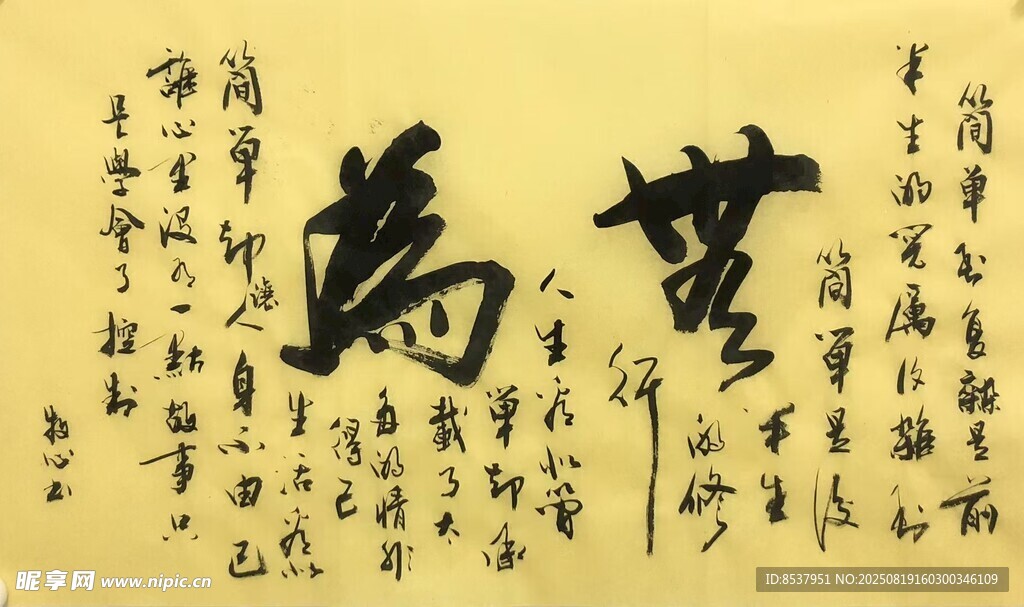 無為
簡單到复雜是前
半生的览厲復雜到
簡單是後
半生
的修
行
人生看似簡
單却承
載了太
多的情非
得已
生活看似
簡單却讓人身不由己
誰心里没有一點故事只
是學會了控制
牧心书
昵享网 www.nipic.cn
ID:8537951 NO:20250819160300346109